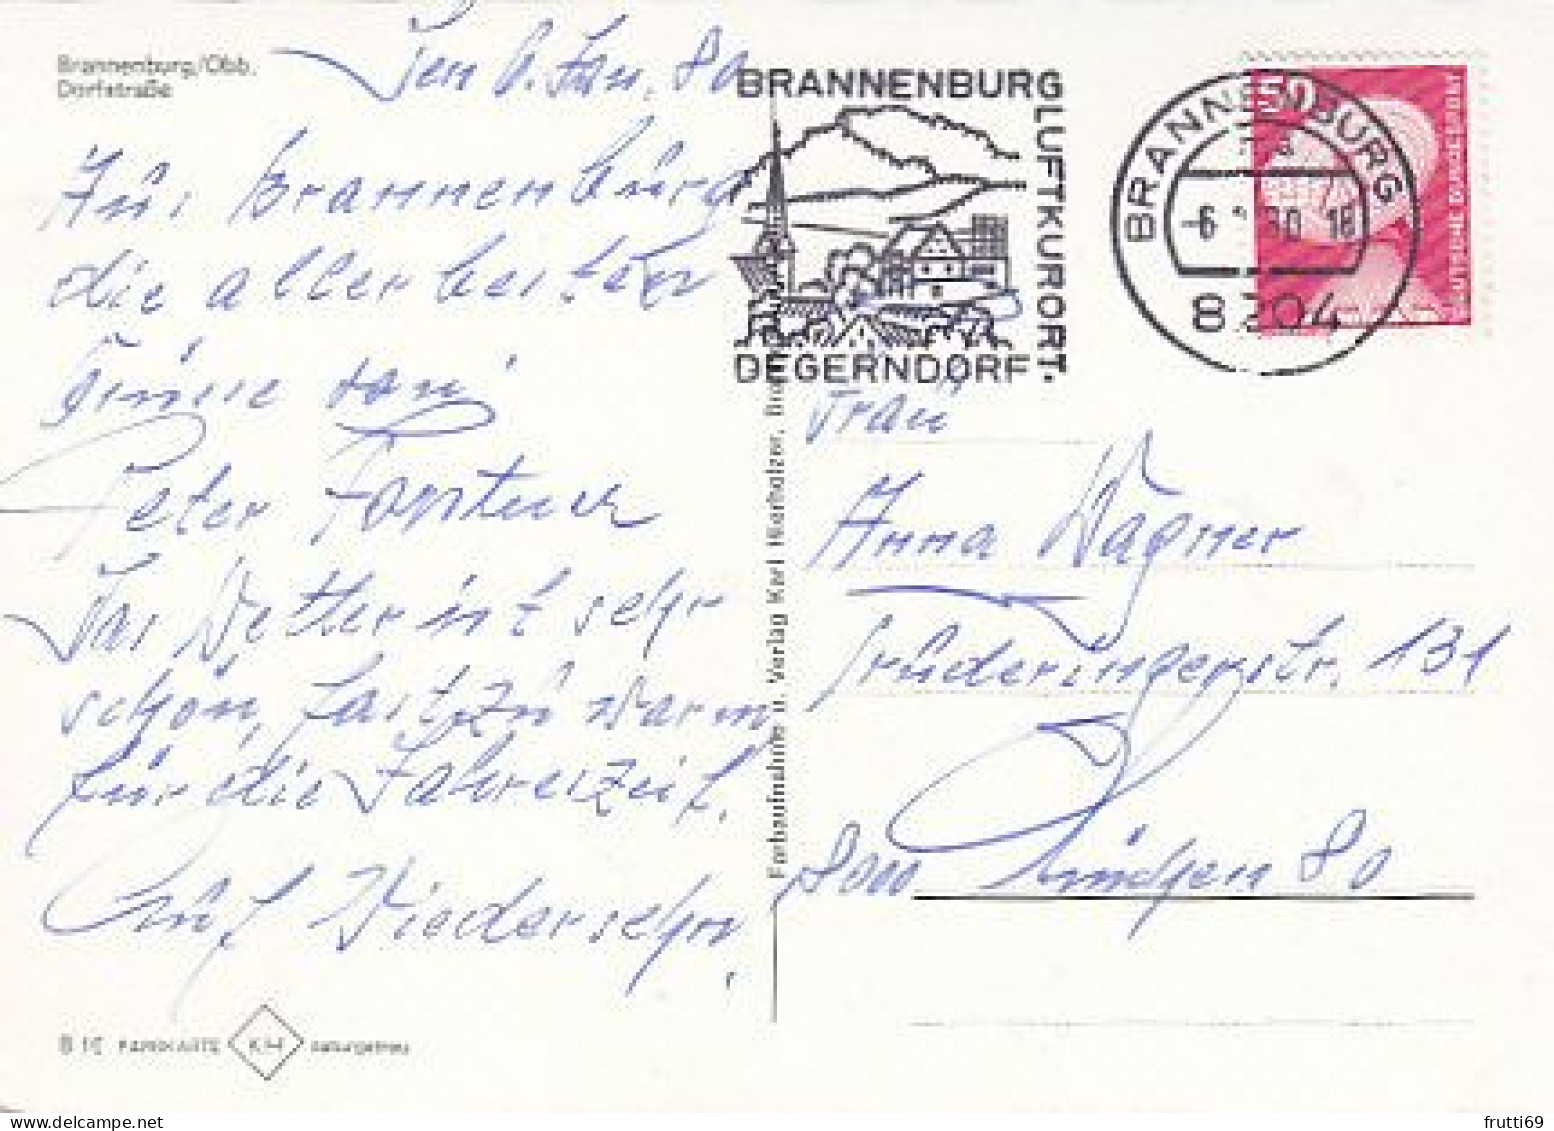 Brannenburg/Obb.
Dorfstraße
Den 6. Jan. 80
Aus Brannenburg
die allerbesten
Grüsse von
Peter
Das Wetter ist sehr
schön, fast zu warm
für die Jahreszeit.
Auf Wiedersehn
BRANNENBURG
LUFTKURORT
DEGERNDORF.
BRANNENBURG
-6 80 18
8204
50
DEUTSCHE BUNDESPOST
Farbaufnahme u. Verlag Karl Hierholzer,
Frau
Anna Wagner
Truderingerstr. 131
8000 München 80
FARBKARTE KH naturgetreu
frutti69